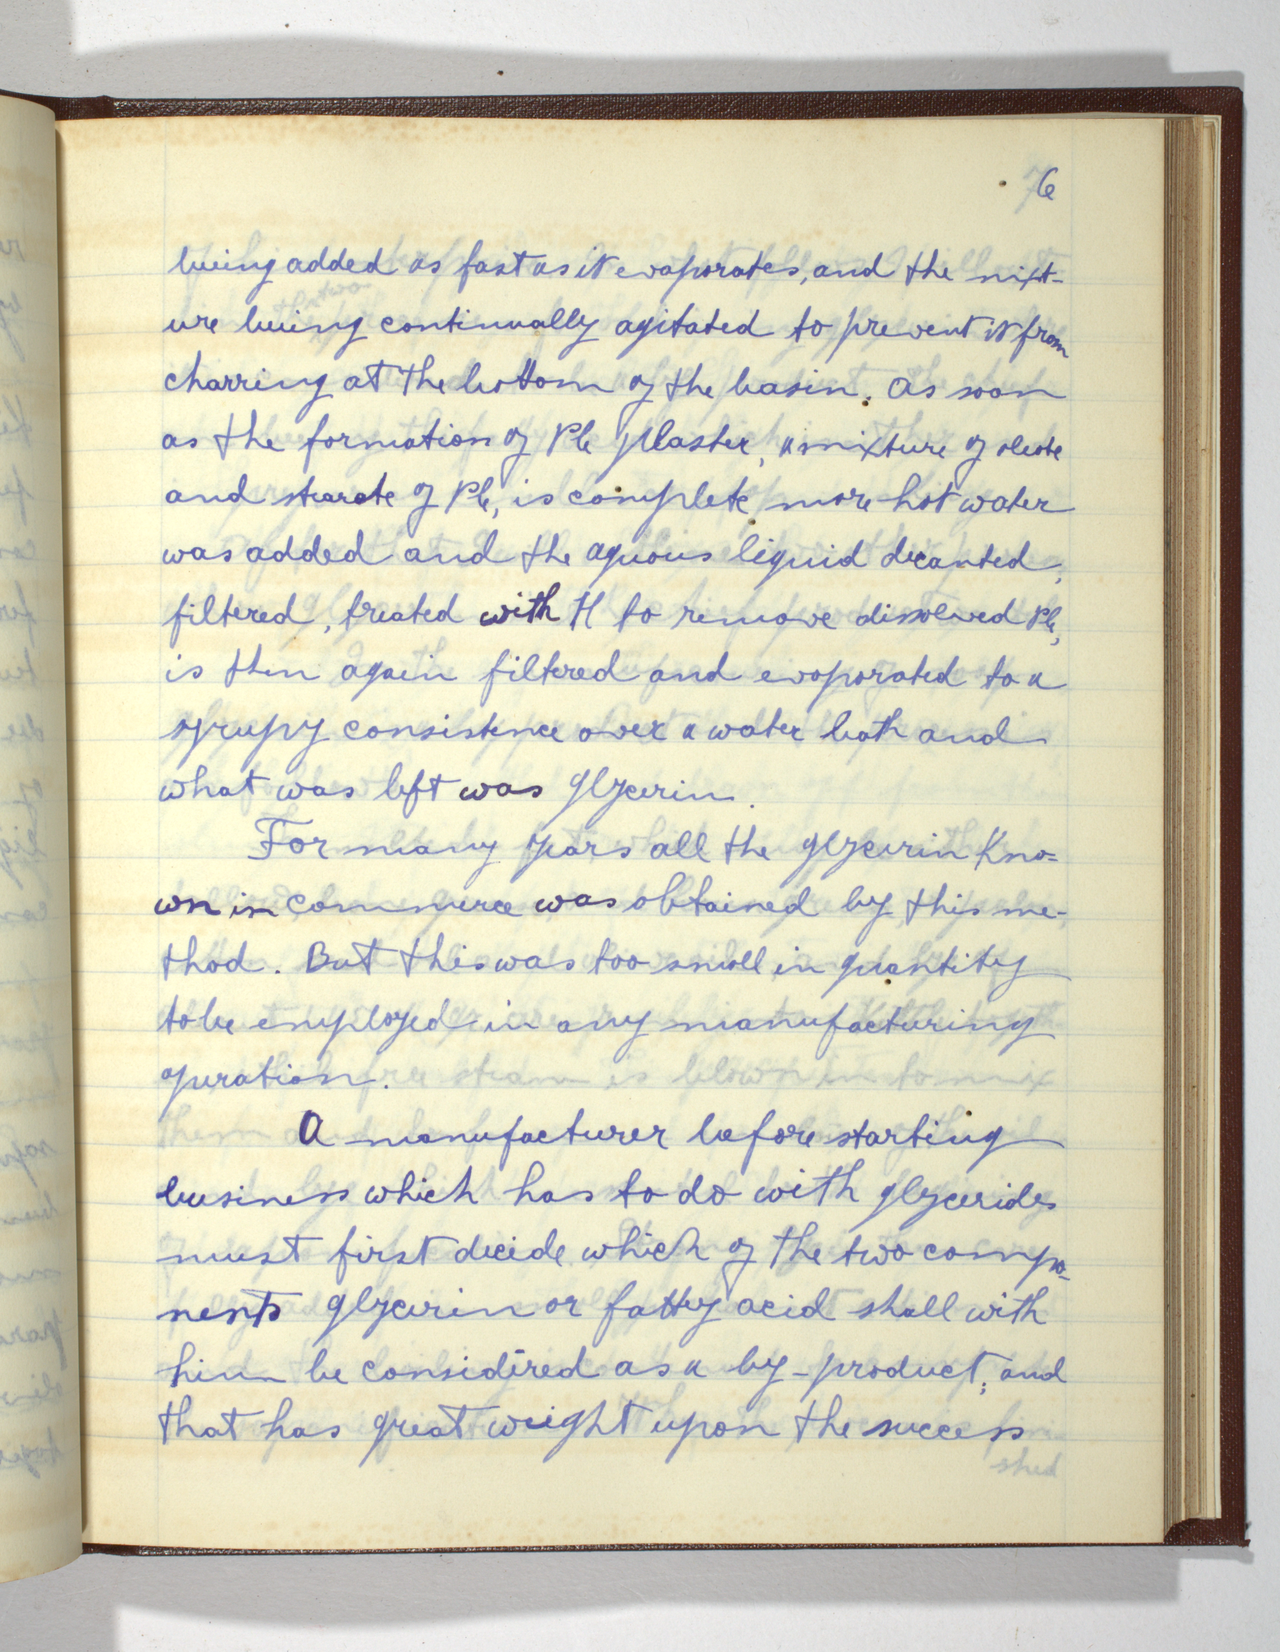 6
being added as fast as it evaporates, and the mixt-
ure being continually agitated to prevent it from
charring at the bottom of the basin. As soon
as the formation of Pb plaster, a mixture of oleate
and stearate of Pb, is complete more hot water
was added and the aquous liquid decanted,
filtered, treated with H to remove dissolved Pb,
is then again filtered and evaporated to a
syrupy consistence over a water bath and
what was left was glycerin.
For many years all the glycerin kno=
wn in commerce was obtained by this me-
thod. But this was too small in quantity
to be employed in any manufacturing
operation.
A manufacturer before starting
business which has to do with glycerides
must first decide which of the two compo-
nents glycerin or fatty acid shall with
him be considered as a by-product; and
that has great weight upon the success